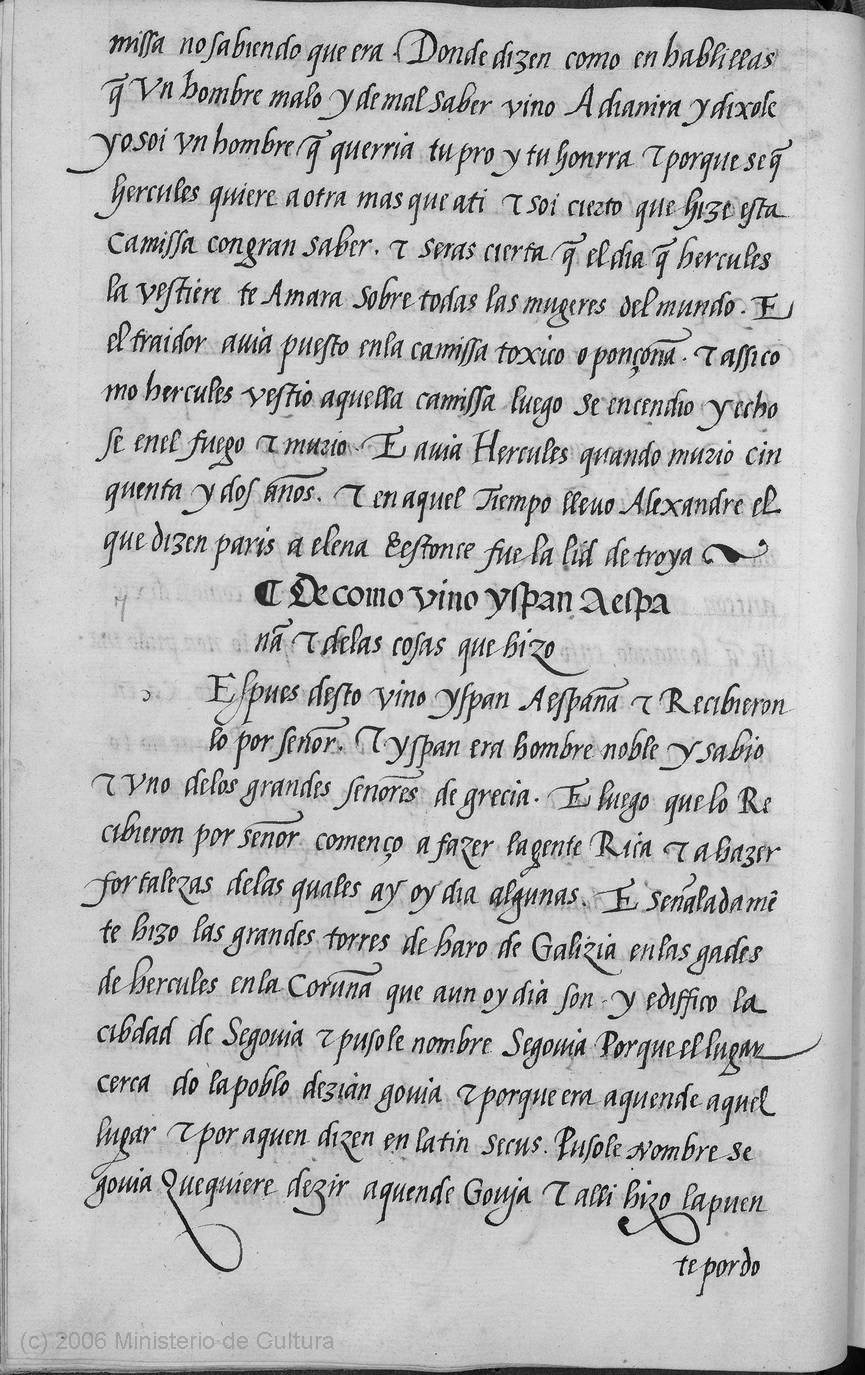 missa no sabiendo que era . Donde dizen como en hablillas
q̃ Vn hombre malo y de mal saber vino A dianira y dixole
yo soi vn hombre q̃ querria tu pro y tu honrra ⁊ porque se q̃
hercules quiere a otra mas que ati ⁊ soi cierto que hize esta
Camissa con gran saber . ⁊ seras cierta q̃ el dia q̃ hercules
la vestiere te Amara sobre todas las mugeres del mundo . E
el traidor auia puesto en la camissa toxico o ponçoña . ⁊ assi co
mo hercules vestio aquella camissa luego se encendio y echo
se en el fuego ⁊ murio . E auia Hercules quando murio cin
quenta y dos años . ⁊ en aquel Tiempo lleuo Alexandre el
que dizen paris a elena & estonce fue la lid de troya
¶ De como vino yspan A espa
ña ⁊ de las cosas que hizo
Espues desto vino yspan A españa ⁊ Recibieron
lo por señor . ⁊ yspan era hombre noble y sabio
⁊ vno de los grandes señores de grecia . E luego que lo Re
cibieron por señor començo a fazer la gente Rica ⁊ a hazer
fortalezas de las quales ay oy dia algunas . E señaladamē
te hizo las grandes torres de haro de Galizia en las gades
de hercules en la Coruña que aun oy dia son . y ediffico la
cibdad de Segouia ⁊ pusole nombre Segouia Porque el lugar
cerca do la poblo dezian gouia ⁊ porque era aquende aquel
lugar ⁊ por aquen dizen en latin secus . Pusole nombre se
gouia Que quiere dezir aquende Gouja ⁊ alli hizo la puen
te por do
(c) 2006 Ministerio de Cultura